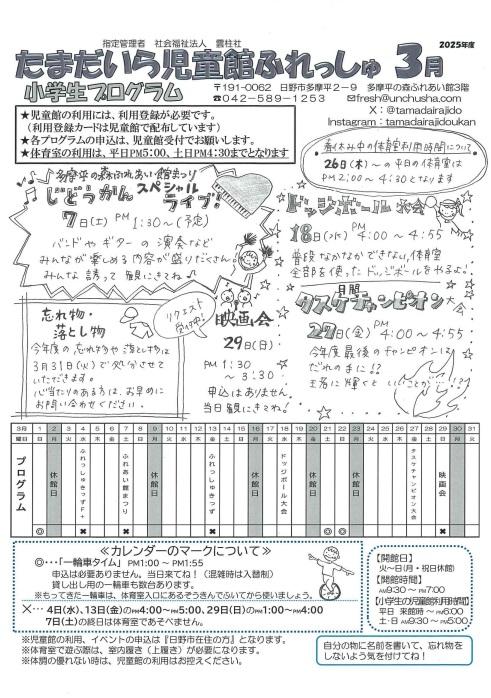 指定管理者　社会福祉法人　雲柱社
2025年度
たまだいら児童館ふれっしゅ 3月
小学生プログラム
〒191-0062　日野市多摩平2－9　多摩平の森ふれあい館3階
☎042-589-1253　✉fresh@unchusha.com
X：@tamadairajido
Instagram：tamadairajidoukan
★児童館の利用には、利用登録が必要です。
（利用登録カードは児童館で配布しています）
★各プログラムの申込は、児童館受付でお願いします。
★体育室の利用は、平日PM5:00、土日PM4:30までとなります
春休み中の体育室利用時間について
26日（木）～の平日の体育室は
PM2:00～4:30となります
多摩平の森ふれあい館まつり
じどうかん スペシャル
ライブ！
7日（土）PM 1:30～（予定）
バンドやギターの演奏など
みんなが楽しめる内容が盛りだくさん。
みんな誘って観にきてね♪
ドッジボール大会
18日（水）PM 4:00～4:55
普段なかなかできない、体育室
全部を使ったドッジボールをやるよ！
忘れ物・
落とし物
今年度の忘れ物や落とし物は
3月31日（火）で処分させて
いただきます。
心あたりのある方は、お早めに
お問い合わせください。
リクエスト
受付中！
映画会
29日（日）
PM 1:30
～3:30
申込はありません。
当日観にきてね！
月間
タスケチャンピオン大会
27日（金）PM 4:00～4:55
今年度最後のチャンピオンは
だれのまに！？
王者に輝くと いいことが…！？
3月 1 2 3 4 5 6 7 8 9 10 11 12 13 14 15 16 17 18 19 20 21 22 23 24 25 26 27 28 29 30 31
曜日 日 月 火 水 木 金 土 日 月 火 水 木 金 土 日 月 火 水 木 金 土 日 月 火 水 木 金 土 日 月 火
プログラム
休館日
ふれっしゅきっずF+
ふれあい館まつり
休館日
ふれっしゅきっず
休館日
ドッジボール大会
休館日
休館日
タスケチャンピオン大会
映画会
休館日
◎ ✖ ✖ ✖ ◎ ◎ ✖ ◎
≪カレンダーのマークについて≫
◎…「一輪車タイム」PM1:00～PM1:55
申込は必要ありません。当日来てね！（混雑時は入替制）
貸し出し用の一輪車も数台あります。
※もってきた一輪車は、体育室入口にあるぞうきんでふいてから使いましょう。
×… 4日（水）、13日（金）のPM4:00～PM5:00、29日（日）のPM1:00～PM4:00
7日（土）の終日は体育室であそべません。
【開館日】
火～日（月・祝日休館）
【開館時間】
AM9:30 ～ PM7:00
【小学生の児童館利用時間】
平日 来館時 ～ PM6:00
土・日 AM9:30 ～ PM5:00
※児童館の利用、イベントの申込は『日野市在住の方』となります。
※体育室で遊ぶ際は、室内履き（上履き）が必要になります。
※体調の優れない時は、児童館の利用はお控えください。
自分の物に名前を書いて、忘れ物を
しないよう気を付けてね！